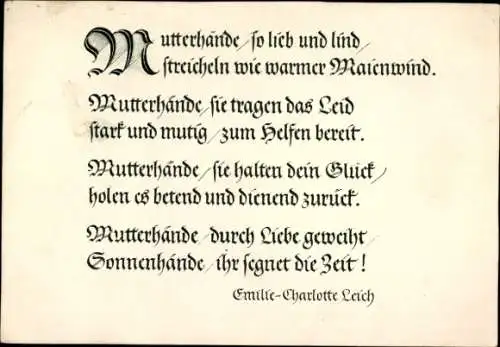 Mutterhände / so lieb und lind /
streicheln wie warmer Maienwind.
Mutterhände / sie tragen das Leid
stark und mutig / zum Helfen bereit.
Mutterhände / sie halten dein Glück /
holen es betend und dienend zurück.
Mutterhände / durch Liebe geweiht /
Sonnenhände / ihr segnet die Zeit!
Emilie-Charlotte Leich